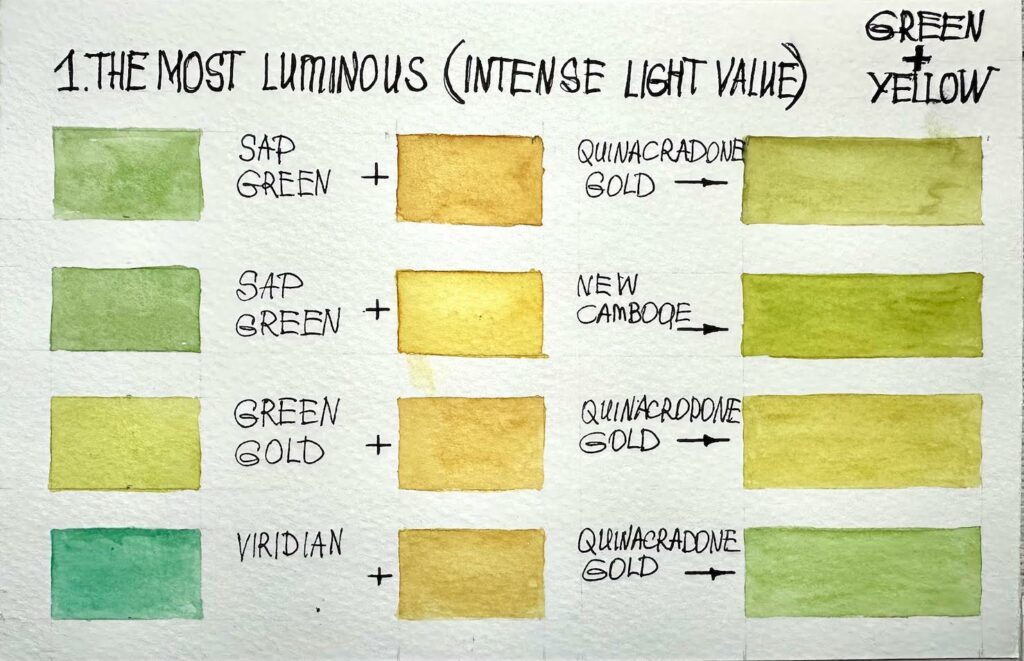 GREEN
+
YELLOW
1. THE MOST LUMINOUS (INTENSE LIGHT VALUE)
SAP
GREEN
+
QUINACRADONE
GOLD →
SAP
GREEN
+
NEW
CAMBOQE →
GREEN
GOLD
+
QUINACRODONE
GOLD →
VIRIDIAN
+
QUINACRADONE
GOLD →